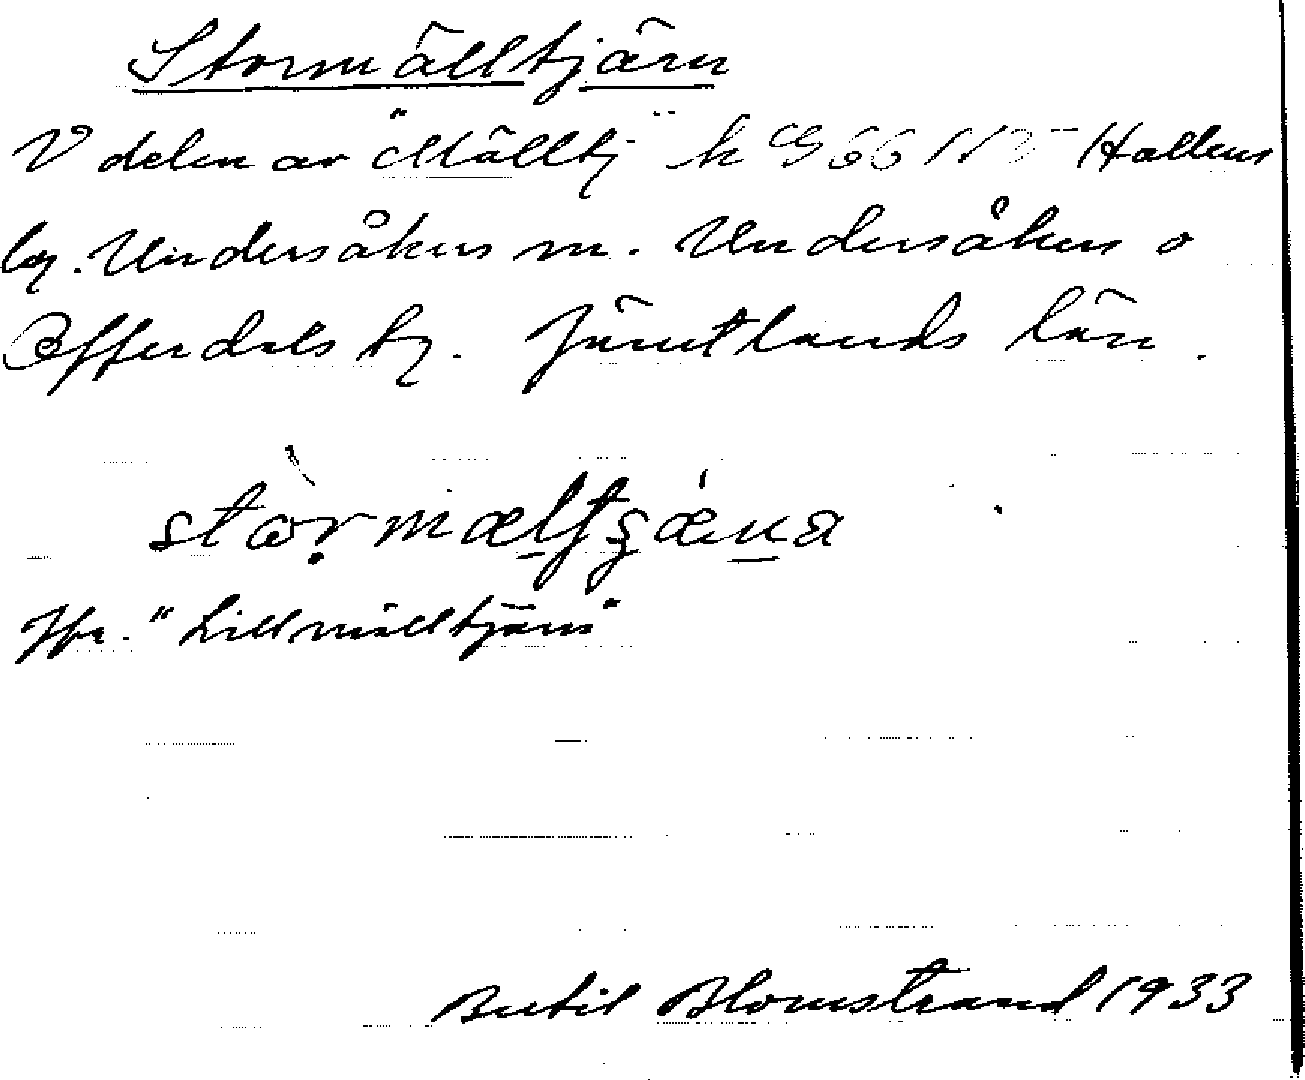 Stormälltjärn
V delen av "Mälltj" k G 66 Hallens
by. Undersåkers sn. Undersåkers o
Offerdals tg. Jämtlands län.
Jfr. "Lillmälltjärn"
Bertil Blomstrand 1933